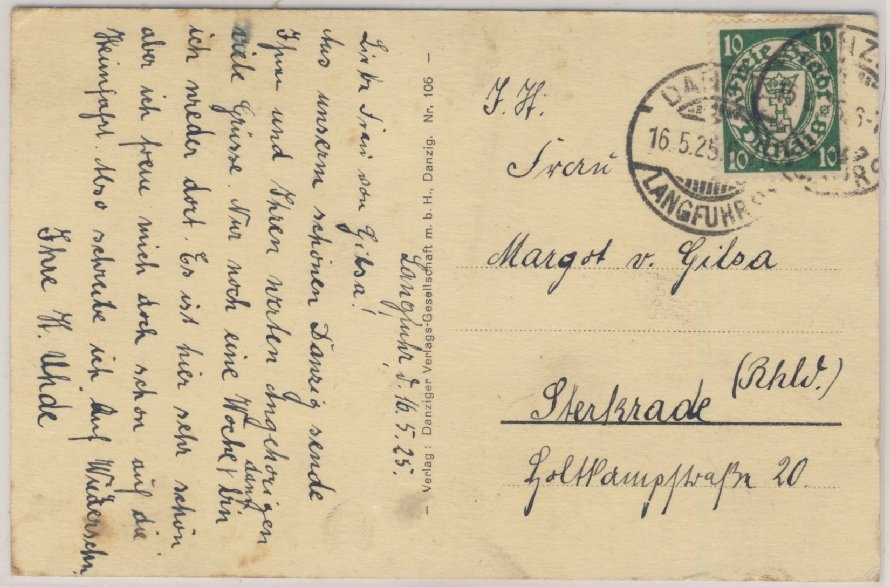 Langfuhr, d. 16.5.25.
Liebe Frau von Gilsa!
Aus unserm schönen Danzig sende
Ihnen und Ihren werten Angehörigen
viele Grüsse. Nur noch eine Woche & dann bin
ich wieder dort. Es ist hier sehr schön
aber ich freue mich doch schon auf die
Heimfahrt. Also schreibe ich Auf Wiedersehn
Ihre H. Uhde
— Verlag: Danziger Verlags-Gesellschaft m. b. H., Danzig. Nr. 106 —
10 10
Freie Stadt
Danzig
10 10
DAN
16.5.25
LANGFUHR
Frau
Margot v. Gilsa
Sterkrade (Rhld.)
Holtkampstraße 20.